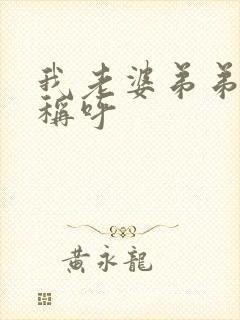 我老婆弟弟
稱呼
黃永龍